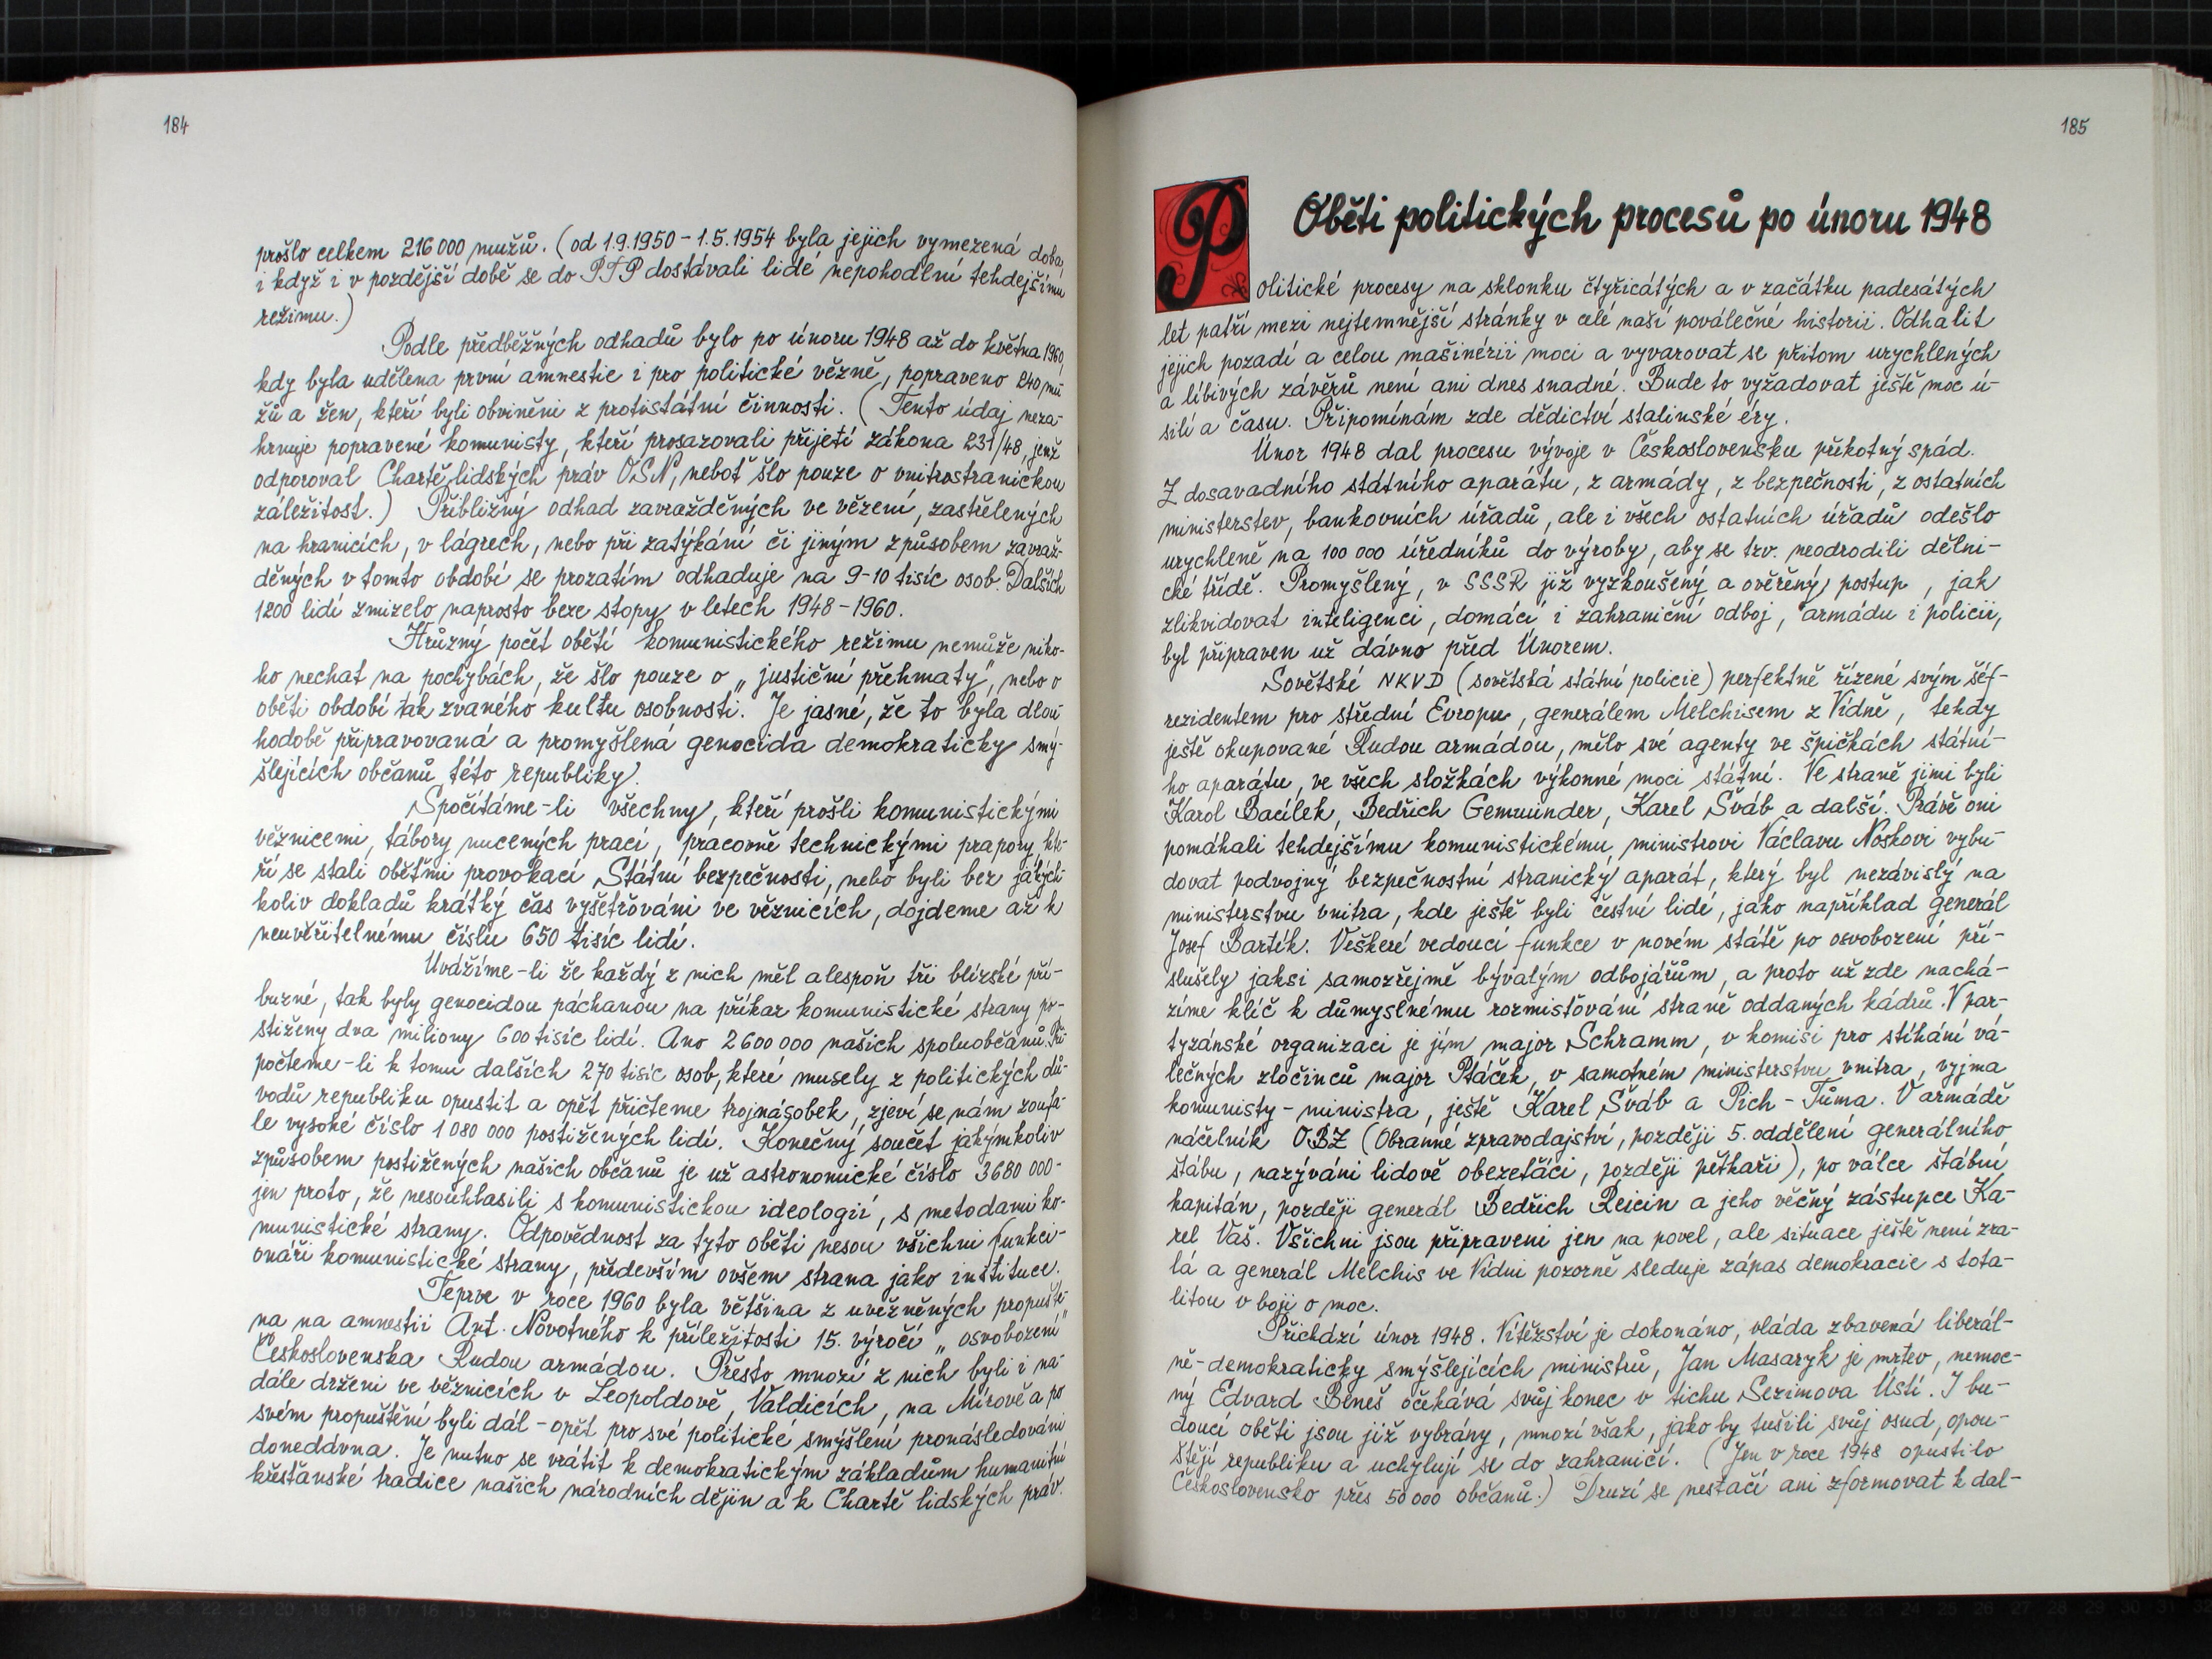 184
prošlo celkem 216 000 mužů. (od 1.9.1950 – 1.5.1954 byla jejich vymezená doba
i když i v pozdější době se do PTP dostávali lidé nepohodlní tehdejšímu
režimu.)
Podle předběžných odhadů bylo po únoru 1948 až do května 1960
kdy byla udělena první amnestie i pro politické vězně, popraveno 240 mu-
žů a žen, kteří byli obviněni z protistátní činnosti. (Tento údaj neza-
hrnuje popravené komunisty, kteří prosazovali přijetí zákona 231/48, jenž
odporoval Chartě lidských práv OSN, neboť šlo pouze o vnitrostranickou
záležitost.) Přibližný odhad zavražděných ve vězení, zastřelených
na hranicích, v lágrech, nebo při zatýkání či jiným způsobem zavraž-
děných v tomto období se prozatím odhaduje na 9-10 tisíc osob. Dalších
1200 lidí zmizelo naprosto beze stopy v letech 1948 – 1960.
Hrůzný počet obětí komunistického režimu nemůže niko-
ho nechat na pochybách, že šlo pouze o „justiční přehmaty", nebo o
oběti období tak zvaného kultu osobnosti. Je jasné, že to byla dlou-
hodobě připravovaná a promyšlená genocida demokraticky smý-
šlejících občanů této republiky.
Spočítáme-li všechny, kteří prošli komunistickými
věznicemi, tábory nucených prací, pracovně technickými prapory, kte-
ří se stali obětmi provokací Státní bezpečnosti, nebo byli bez jakých-
koliv dokladů krátký čas vyšetřováni ve věznicích, dojdeme až k
neuvěřitelnému číslu 650 tisíc lidí.
Uvážíme-li že každý z nich měl alespoň tři blízské pří-
buzné, tak byly genocidou páchanou na příkaz komunistické strany po-
stiženy dva miliony 600 tisíc lidí. Ano 2 600 000 našich spoluobčanů. Při
počteme-li k tomu dalších 270 tisíc osob, které musely z politických dů-
vodů republiku opustit a opět přičteme trojnásobek, zjeví se nám zoufa-
le vysoké číslo 1 080 000 postižených lidí. Konečný součet jakýmkoliv
způsobem postižených našich občanů je už astronomické číslo 3 680 000 -
jen proto, že nesouhlasili s komunistickou ideologií, s metodami ko-
munistické strany. Odpovědnost za tyto oběti nesou všichni funkci-
onáři komunistické strany, především ovšem strana jako instituce.
Teprve v roce 1960 byla většina z uvězněných propuště-
na na amnestii Ant. Novotného k příležitosti 15. výročí „osvobození"
Československa Rudou armádou. Přesto mnozí z nich byli i na-
dále drženi ve věznicích v Leopoldově, Valdicích, na Mírově a po
svém propuštění byli dál - opět pro své politické smýšlení pronásledováni
donedávna. Je nutno se vrátit k demokratickým základům humanitní
křesťanské tradice našich národních dějin a k Chartě lidských práv.
185
Oběti politických procesů po únoru 1948
Politické procesy na sklonku čtyřicátých a v začátku padesátých
let patří mezi nejtemnější stránky v celé naší poválečné historii. Odhalit
jejich pozadí a celou mašinérii moci a vyvarovat se přitom urychlených
a líbivých závěrů není ani dnes snadné. Bude to vyžadovat ještě moc ú-
silí a času. Připomínám zde dědictví stalinské éry.
Únor 1948 dal procesu vývoje v Československu překotný spád.
Z dosavadního státního aparátu, z armády, z bezpečnosti, z ostatních
ministerstev, bankovních úřadů, ale i všech ostatních úřadů odešlo
urychleně na 100 000 úředníků do výroby, aby se tzv. neodrodili dělni-
cké třídě. Promyšlený, v SSSR již vyzkoušený a ověřený postup, jak
zlikvidovat inteligenci, domácí i zahraniční odboj, armádu i policii,
byl připraven už dávno před Únorem.
Sovětské NKVD (sovětská státní policie) perfektně řízené svým šéf-
rezidentem pro střední Evropu, generálem Melchisem z Vídně, tehdy
ještě okupované Rudou armádou, mělo své agenty ve špičkách státní-
ho aparátu, ve všech složkách výkonné moci státní. Ve straně jimi byli
Karol Bacílek, Bedřich Gemuinder, Karel Šváb a další. Právě oni
pomáhali tehdejšímu komunistickému ministrovi Václavu Noskovi vybu-
dovat podvojný bezpečnostní stranický aparát, který byl nezávislý na
ministerstvu vnitra, kde ještě byli čestní lidé, jako například generál
Josef Bartík. Veškeré vedoucí funkce v novém státě po osvobození pří-
slušely jaksi samozřejmě bývalým odbojářům, a proto už zde nachá-
zíme klíč k důmyslnému rozmisťování straně oddaných kádrů. V par-
tyzánské organizaci je jím major Schramm, v komisi pro stíhání vá-
lečných zločinců major Ptáček, v samotném ministerstvu vnitra, vyjma
komunisty - ministra, ještě Karel Šváb a Pich - Tůma. V armádě
náčelník OBZ (Obranné zpravodajství, později 5. oddělení generálního
štábu, nazýváni lidově obezeťáci, později pětkaři), po válce štábní
kapitán, později generál Bedřich Reicin a jeho věčný zástupce Ka-
rel Vaš. Všichni jsou připraveni jen na povel, ale situace ještě není zra-
lá a generál Melchis ve Vídni pozorně sleduje zápas demokracie s tota-
litou v boji o moc.
Přichází únor 1948. Vítězství je dokonáno, vláda zbavená liberál-
ně-demokraticky smýšlejících ministrů, Jan Masaryk je mrtev, nemoc-
ný Edvard Beneš očekává svůj konec v tichu Sezimova Ústí. I bu-
doucí oběti jsou již vybrány, mnozí však, jako by tušili svůj osud, opou-
štějí republiku a uchylují se do zahraničí. (Jen v roce 1948 opustilo
Československo přes 50 000 občanů.) Druzí se nestačí ani zformovat k dal-